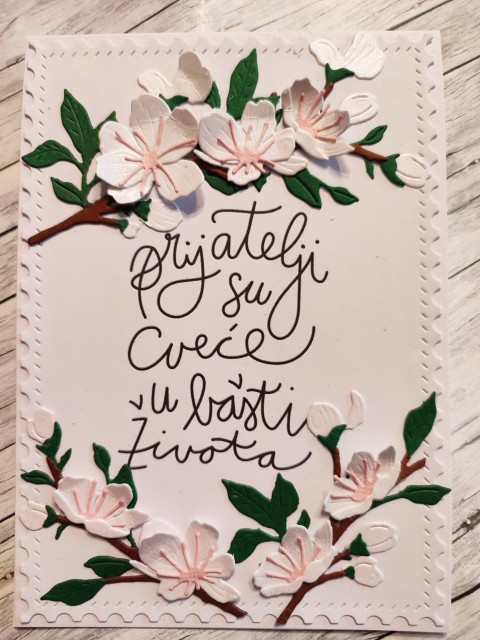 prijatelji
su
cveće
u bášti
života